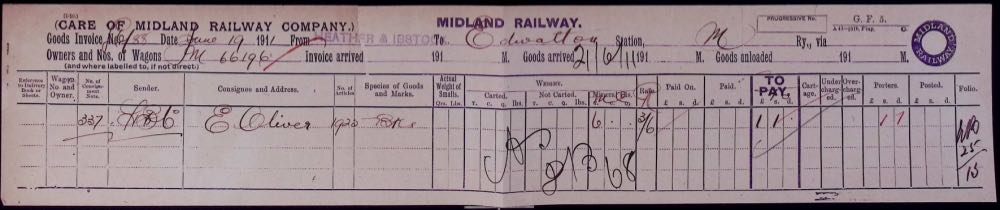 (CARE OF MIDLAND RAILWAY COMPANY.)
MIDLAND RAILWAY.
PROGRESSIVE No.
G. F. 5.
Goods Invoice No. Date June 19 1911 From HEATHER & IBSTOCK To Edwalton Station, M Ry., via
Owners and Nos. of Wagons M 66196 Invoice arrived 191 M. Goods arrived 21/6/11 191 M. Goods unloaded 191 M.
(and where labelled to, if not direct.)
MIDLAND RAILWAY
Reference to Delivery Book or Sheets.
Wagon No and Owner.
No. of Consignment Note.
Sender.
Consignee and Address.
No. of Articles
Species of Goods and Marks.
Actual Weight of Smalls.
Qrs. Lbs.
WEIGHT.
Carted.
T. C. Q. lbs.
Not Carted.
T. C. Q. lbs.
Rate.
Paid On.
£ s. d.
Paid.
£ s. d.
TO PAY.
£ s. d.
Cartage.
Undercharged.
Overcharged.
Porters.
£ s. d.
Posted.
£ s. d.
Folio.
337 E. Oliver 6 3/6 1 1 1 1
25
15